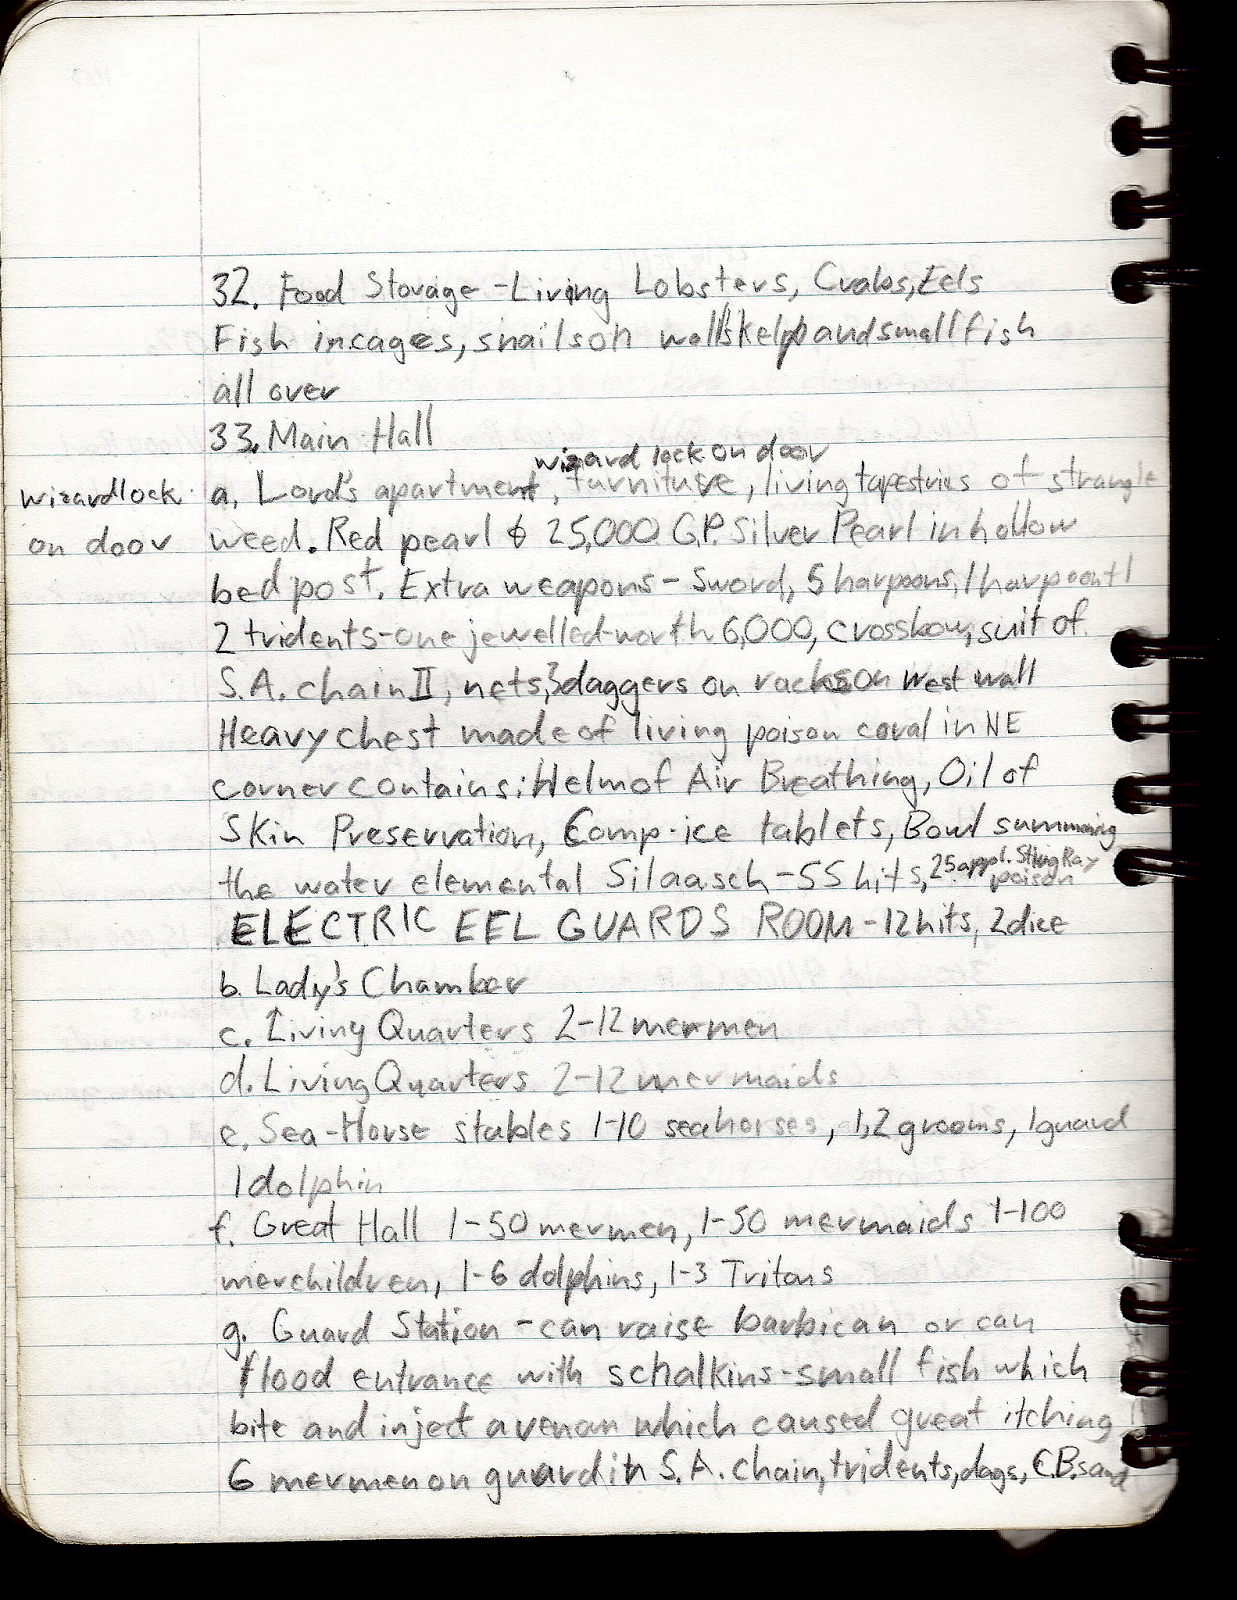 32. Food Storage - Living Lobsters, Crabs, Eels
Fish in cages, snails on walls kelp and small fish
all over
33. Main Hall
wizard lock on door
wizard lock
on door
a. Lord's apartment, furniture, living tapestries of strangle
weed. Red pearl 25,000 G.P. Silver Pearl in hollow
bed post. Extra weapons - Sword, 5 harpoons, 1 harpoon
2 tridents - one jewelled - worth 6,000, crossbow, suit of
S.A. chain II, nets, 3 daggers on racks on west wall
Heavy chest made of living poison coral in NE
corner contains: Helm of Air Breathing, Oil of
Skin Preservation, Comp-ice tablets, Bowl summoning
the water elemental Silaasch - 55 hits, 25 appl. Sting Ray
poison
ELECTRIC EEL GUARDS ROOM - 12 hits, 2 dice
b. Lady's Chamber
c. Living Quarters 2-12 mermen
d. Living Quarters 2-12 mermaids
e. Sea-Horse stables 1-10 seahorses, 1,2 grooms, 1 guard
1 dolphin
f. Great Hall 1-50 mermen, 1-50 mermaids 1-100
merchildren, 1-6 dolphins, 1-3 Tritons
g. Guard Station - can raise barbican or can
flood entrance with schalkins - small fish which
bite and inject a venom which caused great itching
6 mermen on guard in S.A. chain, tridents, dags, C.B.s and